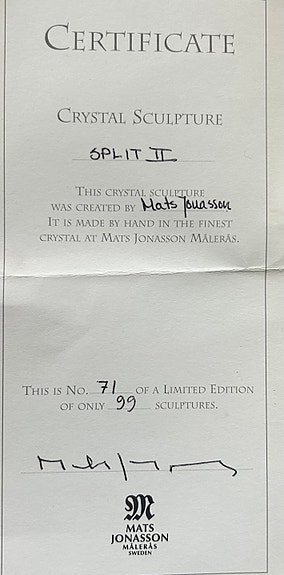 CERTIFICATE
CRYSTAL SCULPTURE
SPLIT II
THIS CRYSTAL SCULPTURE
WAS CREATED BY Mats Jonasson
IT IS MADE BY HAND IN THE FINEST
CRYSTAL AT MATS JONASSON MÅLERÅS.
THIS IS NO. 71 OF A LIMITED EDITION
OF ONLY 99 SCULPTURES.
M
MATS
JONASSON
MÅLERÅS
SWEDEN